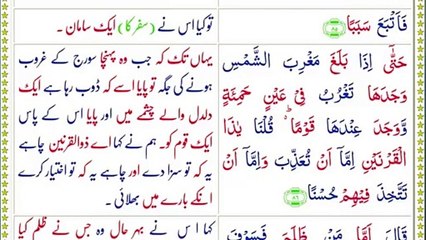 فَاَتْبَعَ سَبَبًا ﴿۸۵﴾
تو کیا اس نے (سفر کا) ایک سامان ۔
حَتّٰۤی اِذَا بَلَغَ مَغْرِبَ الشَّمْسِ
وَجَدَهَا تَغْرُبُ فِیْ عَیْنٍ حَمِئَةٍ
وَّ وَجَدَ عِنْدَهَا قَوْمًا ؕ۬ قُلْنَا یٰذَا
الْقَرْنَیْنِ اِمَّاۤ اَنْ تُعَذِّبَ وَ اِمَّاۤ اَنْ
تَتَّخِذَ فِیْهِمْ حُسْنًا ﴿۸۶﴾
یہاں تک کہ جب وہ پہنچا سورج کے غروب
ہونے کی جگہ تو پایا اسے کہ ڈوب رہا ہے ایک
دلدل والے چشمے میں اور پایا اس کے پاس
ایک قوم کو ۔ ہم نے کہا اے ذوالقرنین چاہے
یہ کہ تو سزا دے اور چاہے یہ کہ تو اختیار کرے
انکے بارے میں بھلائی ۔
قَالَ اَمَّا مَنْ ظَلَمَ فَسَوْفَ
کہا اس نے بہر حال وہ جس نے ظلم کیا